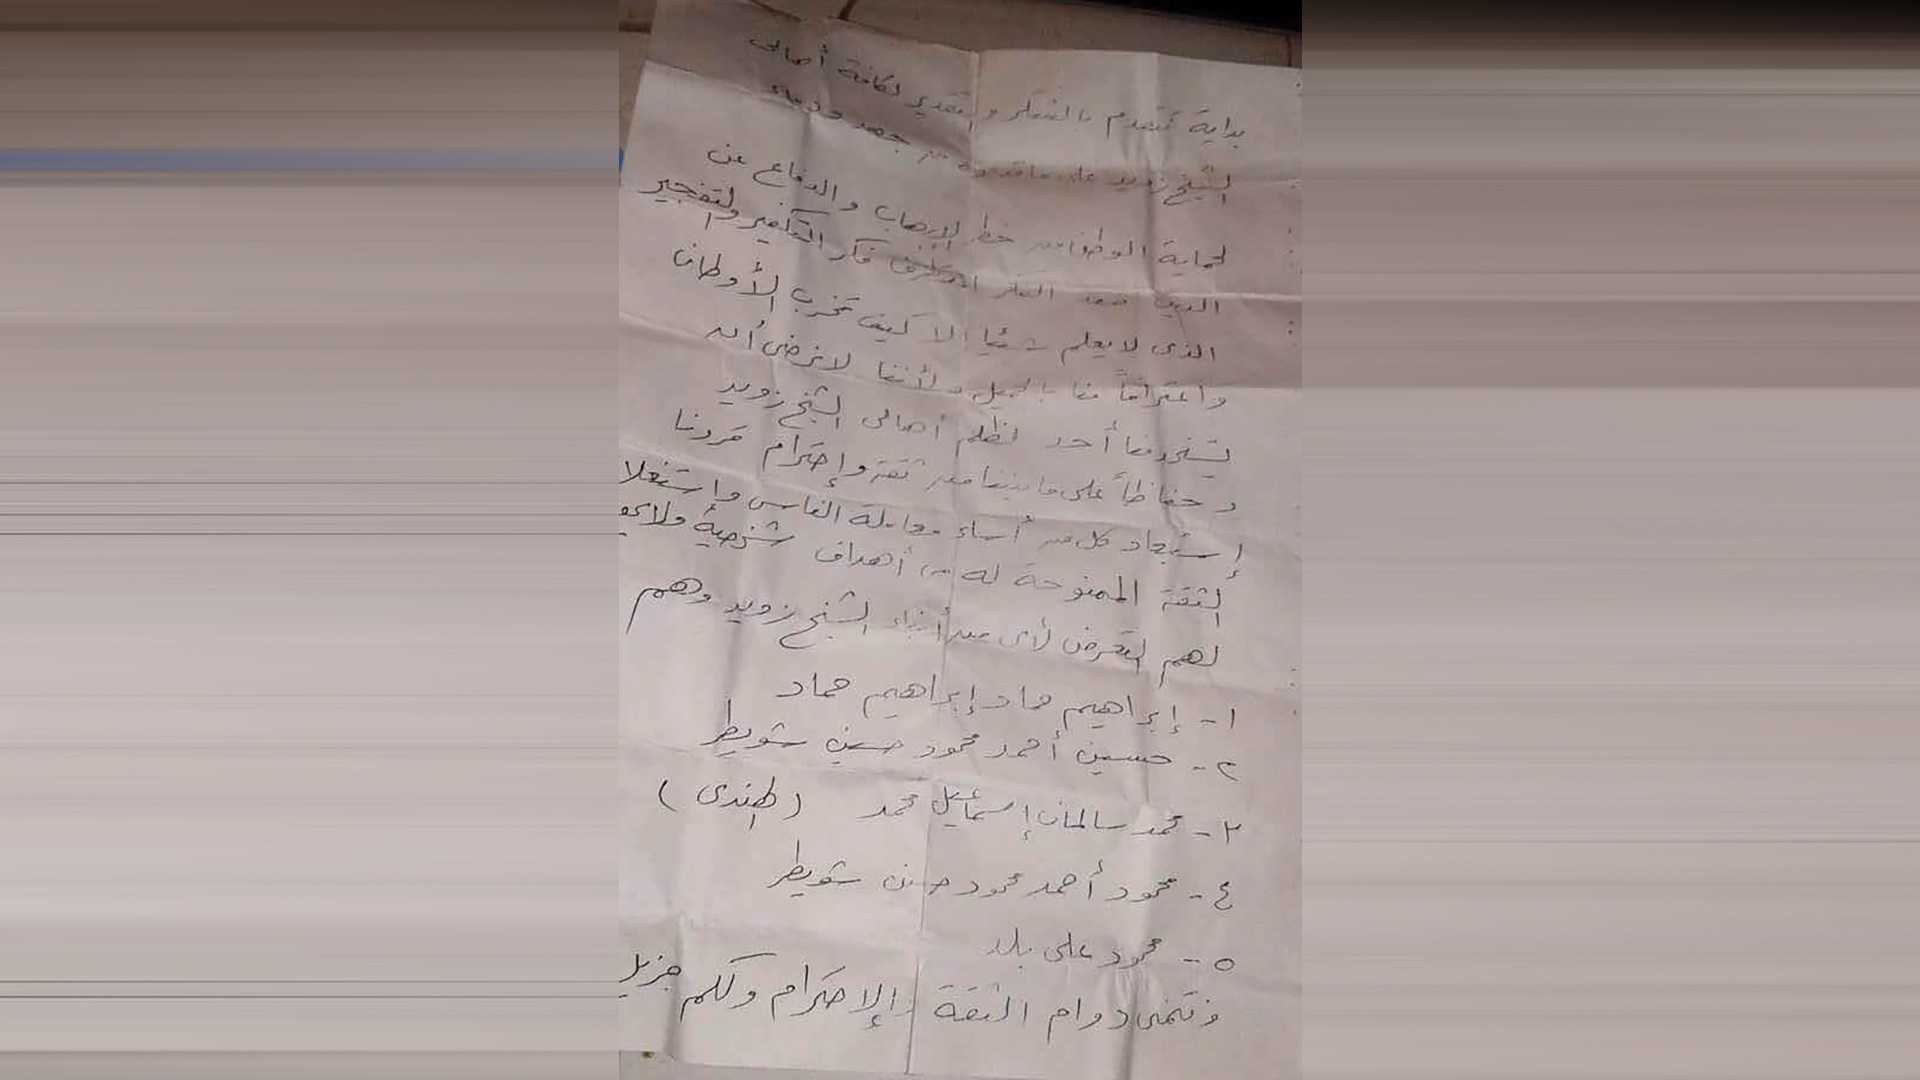 بداية نتقدم بالشكر والتقدير لكافة أهالى
الشيخ زويد على ما قدموه من جهد ودماء
لحماية الوطن من خطر الإرهاب والدفاع عن
الدين ضد الفكر المتطرف فكر التكفير والتفجير
الذى لا يعلم شئيا إلا كيف تخرب الأوطان
واعترافاً منا بالجميل ولأننا لا نرضى أن
يستخدمنا أحد لظلم أهالى الشيخ زويد
وحفاظاً على ما بيننا من ثقة وإحترام قررنا
إستبعاد كل من أساء معاملة الناس وإستغلا
الثقة الممنوحة له من أهداف شخصية ولا يحق
لهم التعرض لأى من أبناء الشيخ زويد وهم
١- إبراهيم حماد إبراهيم حماد
٢- حسين أحمد محمود حسين شويطر
٣- محمد سالمان إسماعيل محمد (الهندى)
٤- محمود أحمد محمود حسين شويطر
٥- محمود على بلد
ونتمنى دوام الثقة والإحترام ولكم جزيل